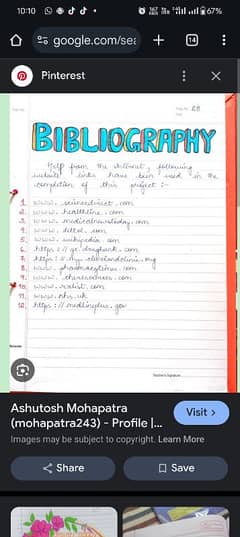 10:10
67%
google.com/sea
14
Pinterest
Page No. 28
BIBLIOGRAPHY
Help from the internet, following
website links have been used in the
completion of this project :-
1. www. sciencedirect . com
2. www. healthline . com
3. www. medicalnewstoday . com
4. www. dettol . com
5. www. wikipedia . com
6. https : // go . drugbank . com
7. https : // my . clevelandclinic . org
8. www. pharmaeasy . com
9. www. . com
10. www. . com
11. www. nhs. uk
12. https : // medlineplus . gov
Teacher's Signature
Ashutosh Mohapatra
(mohapatra243) - Profile |...
Visit >
Images may be subject to copyright. Learn More
Share
Save